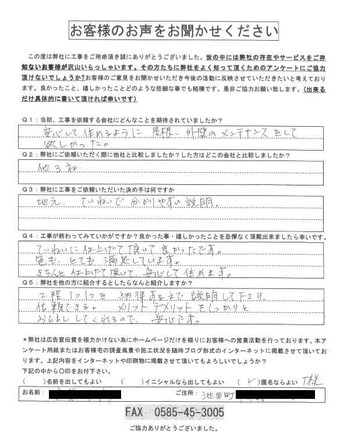 お客様のお声をお聞かせください
この度は弊社に工事をご用命頂き誠にありがとうございました。世の中には弊社の存在やサービスをご存
知ないお客様が沢山いらっしゃいます。その方たちに弊社をよく知って頂くためのアンケートにご協力
頂けないでしょうか？お客様のご意見をお聞かせいただき今後の活動に反映させていきたいと考えており
ます。良かったこと、嬉しかったことどのような些細な事でも結構です。是非ご協力お願い致します。（出来る
だけ具体的に書いて頂ければ幸いです）
Q1：当初、工事を依頼する会社にどんなことを期待されていましたか？
安心して住めるように 屋根、外壁のメンテナンスをして
欲しかった。
Q2：弊社にご依頼いただく間に他社と比較しましたか？した方はどこの会社と比較しましたか？
他3社
Q3：弊社に工事をご依頼いただいた決め手は何ですか
地元、ていねいで分かりやすい説明。
Q4：工事が終わってみていかがですか？良かった事・嬉しかったことを忌憚なく頂戴出来ましたら幸いです。
ていねいに仕上げて頂いて良かったです。
色も、とても満足しています。
きちんと仕上げて頂いて、安心して住めます。
Q5：弊社を他の方に紹介するとしたらなんと紹介しますか？
工程1つ1つを納得するまで説明して下さり、
信頼できる。メリットデメリットをしっかりと
おしえてくれるので、安心です。
＊弊社は広告宣伝費を極力かけない為にホームページだけを頼りにお客様への営業活動を行っております。本ア
ンケート用紙またはお客様宅の調査風景や施工状況を随時ブログ形式のインターネットに掲載させて頂いてお
ります。上記内容をインターネットや印刷物に掲載させて頂いてもよろしいでしょうか？
下記の中から○印をお付下さい。
（ ）名前を出してもよい （ ）イニシャルなら出してもよい （✓）匿名ならよい T様
お名前： ご住所：池田町
FAX 0585-45-3005
ご協力ありがとうございました。